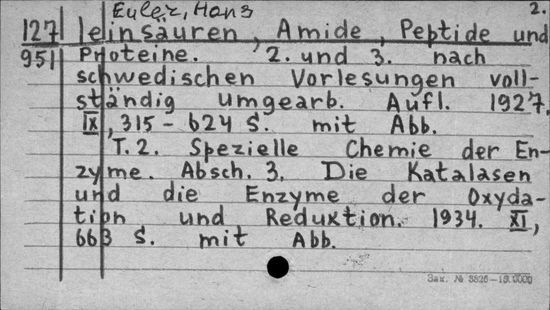 Euler, Hans 2.
127 leinsäuren, Amide, Peptide und
951 Proteine. 2. und 3. nach
schwedischen Vorlesungen voll-
ständig umgearb. Aufl. 1927.
IX, 315-624 S. mit Abb.
T. 2. Spezielle Chemie der En-
zyme. Absch. 3. Die Katalasen
und die Enzyme der Oxyda-
tion und Reduktion. 1934. XI,
663 S. mit Abb.